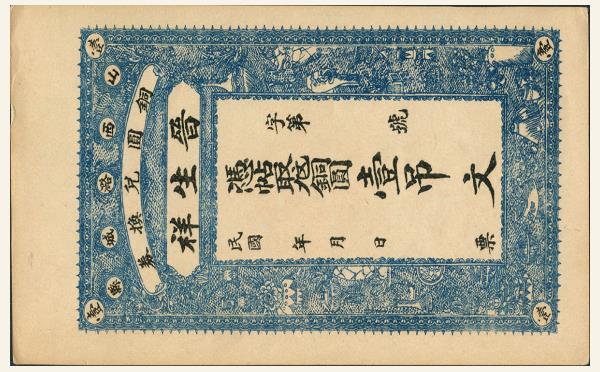 山西潞城縣
銅圓兌換券
晉生祥
字第 號
憑帖取兌銅圓壹吊文
民國 年 月 日 票